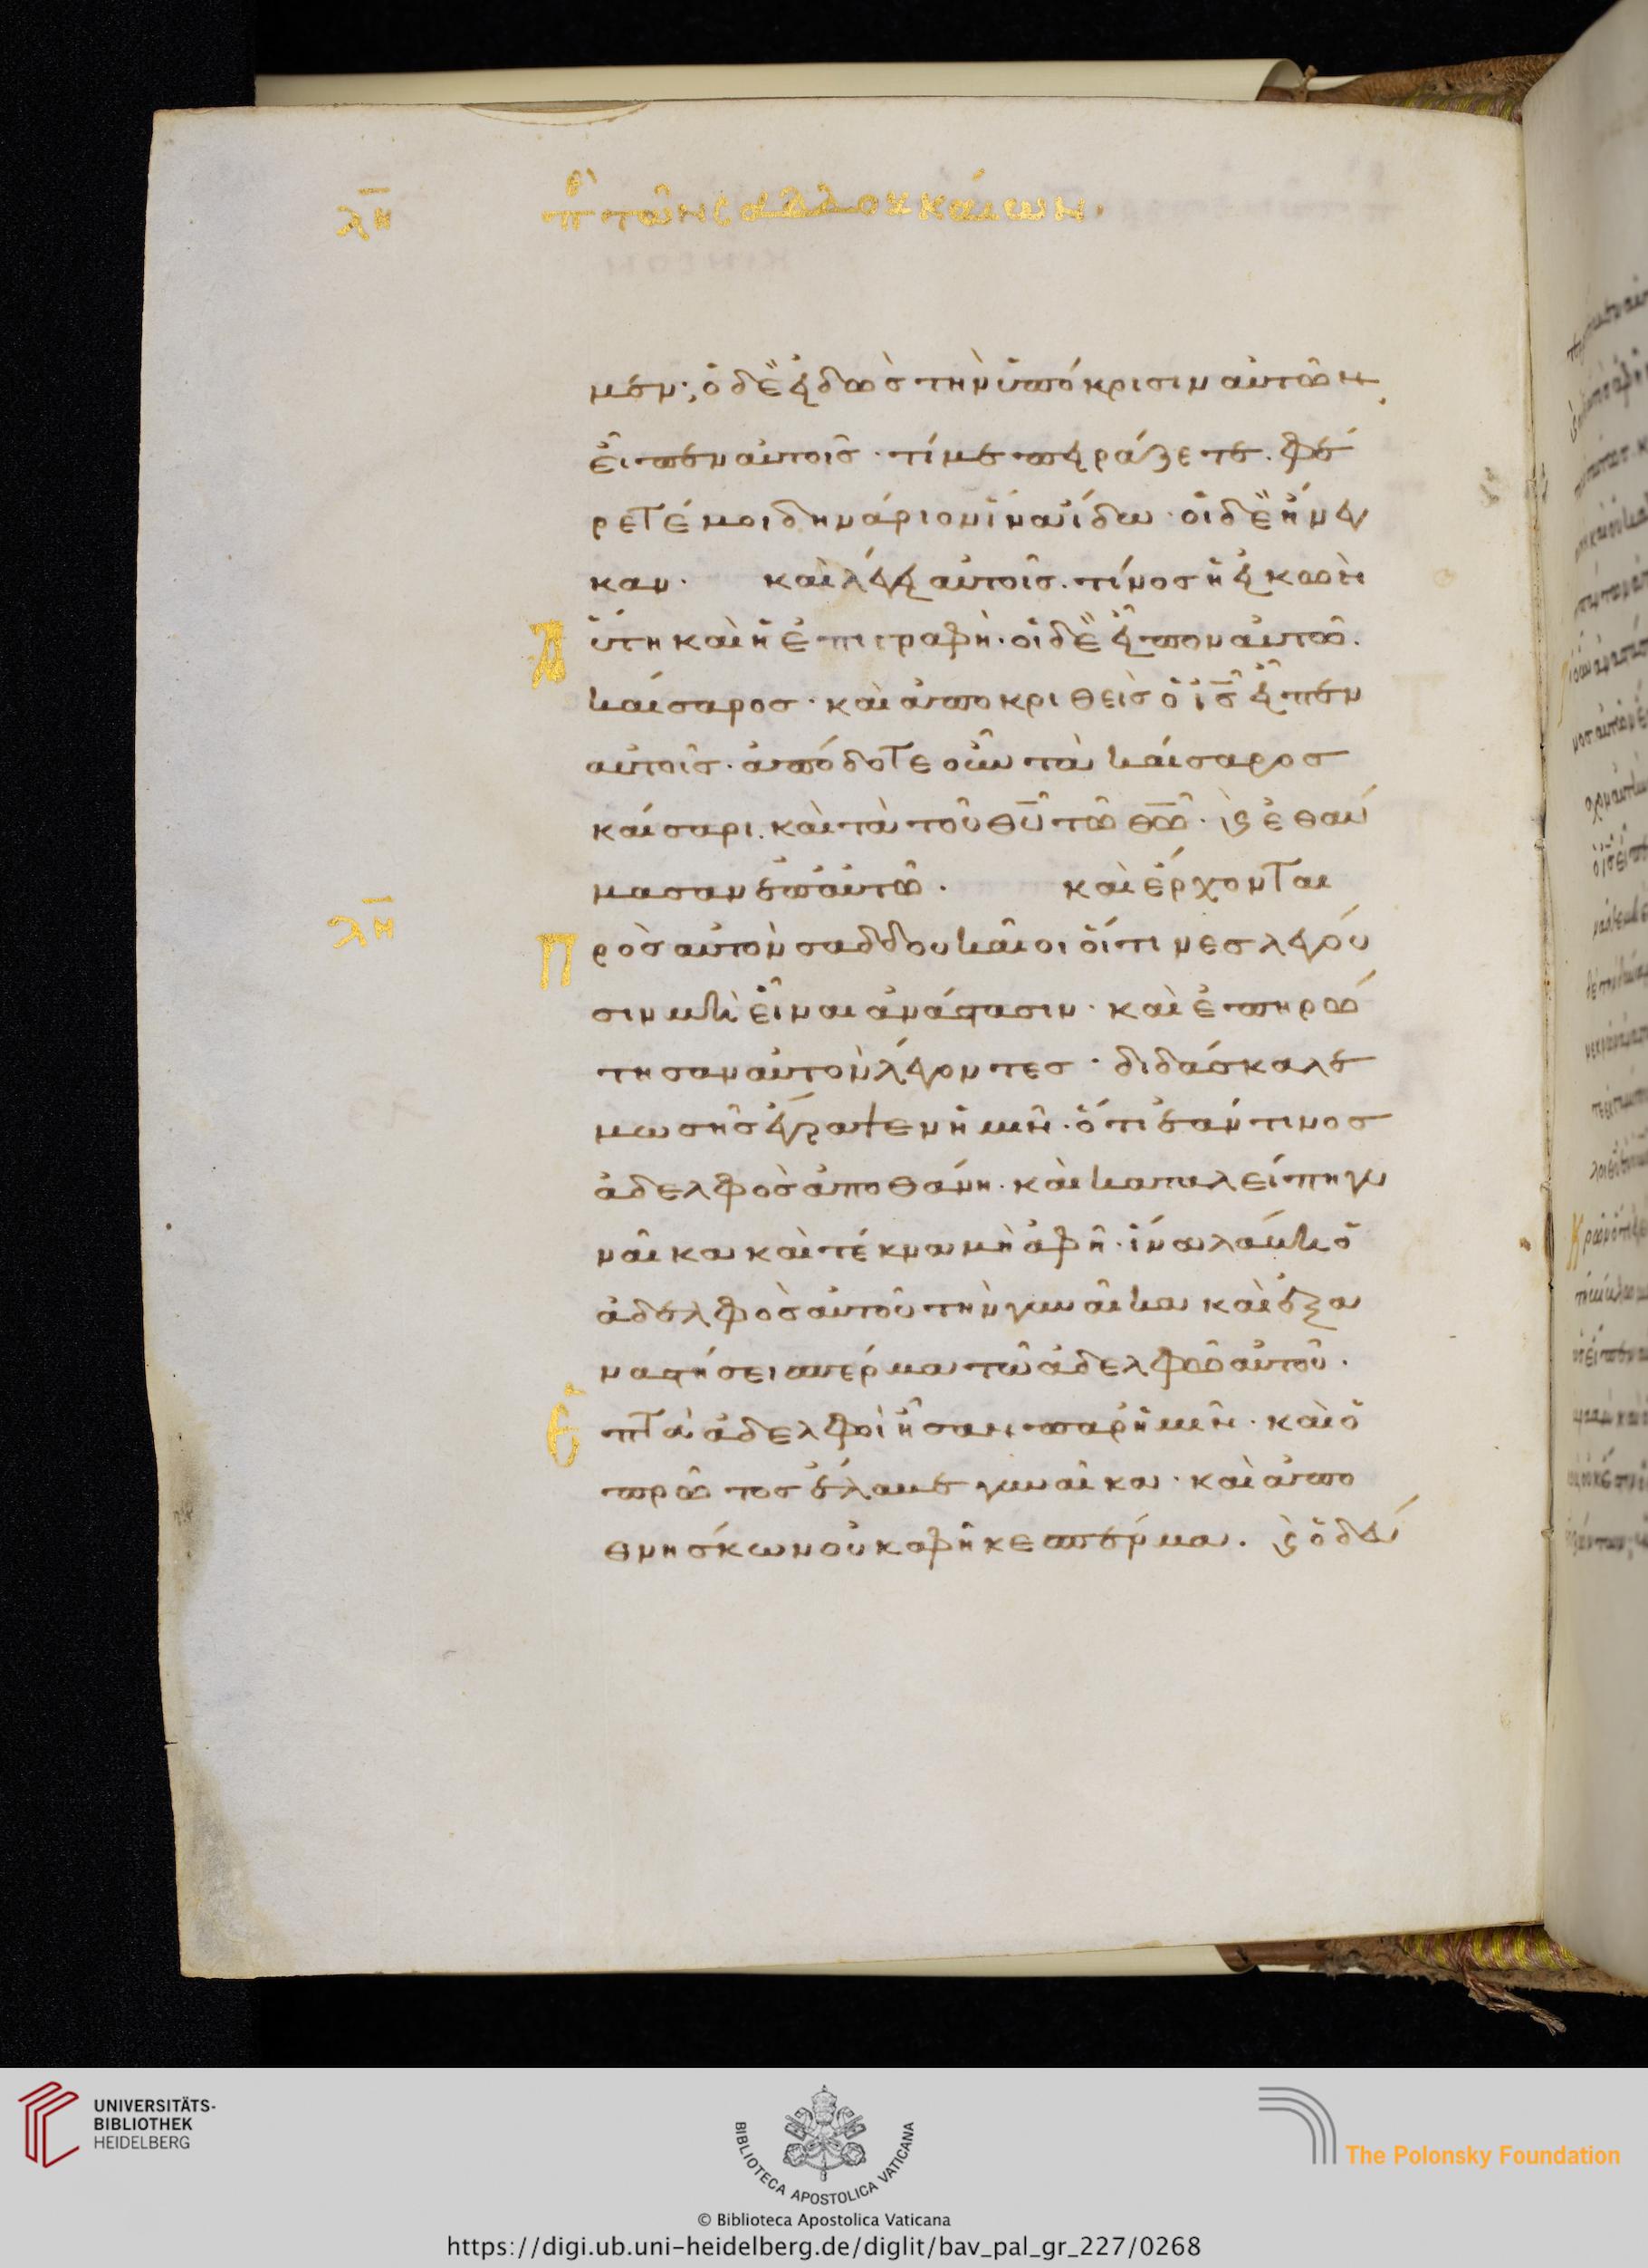 λη πε τῶν σαδδουκαίων.
μεν; ὁ δὲ εἰδὼς τὴν ὑπόκρισιν αὐτῶν,
εἶπεν αὐτοῖς· τί με πειράζετε. φέ
ρετέ μοι δηνάριον ἵνα ἴδω· οἱ δὲ ἤνεγ
καν· καὶ λέγει αὐτοῖς. τίνος ἡ εἰκὼν
Α ὕτη καὶ ἡ ἐπιγραφή· οἱ δὲ εἶπον αὐτῶ.
καίσαρος· καὶ ἀποκριθεὶς ὁ ις εἶπεν
αὐτοῖς· ἀπόδοτε οὖν τὰ καίσαρος
καίσαρι. καὶ τὰ τοῦ θυ τῶ θω· ϗ ἐθαύ
μασαν ἐπ αὐτῶ. καὶ ἔρχονται
λη
Π ρὸς αὐτὸν σαδδουκαῖοι οἵτινες λέγου
σιν μὴ εἶναι ἀνάστασιν· καὶ ἐπηρώ
τησαν αὐτὸν λέγοντες· διδάσκαλε
μωσῆς ἔγραψεν ἡμῖν· ὅτι ἐάν τινος
ἀδελφὸς ἀποθάνη· καὶ καταλείπη γυ
ναῖκα καὶ τέκνα μὴ ἀφῆ· ἵνα λάβη ὁ
ἀδελφὸς αὐτοῦ τὴν γυναῖκα καὶ ἐξα
ναστήσει σπέρμα τῶ ἀδελφῶ αὐτοῦ·
Ἑ πτὰ ἀδελφοὶ ἦσαν παρ ἡμῖν· καὶ ὁ
πρῶτος ἔλαβε γυναῖκα· καὶ ἀπο
θνήσκων οὐκ ἀφῆκε σπέρμα. ϗ ὁ δεύ
UNIVERSITÄTS-
BIBLIOTHEK
HEIDELBERG
BIBLIOTECA APOSTOLICA VATICANA
The Polonsky Foundation
© Biblioteca Apostolica Vaticana
https://digi.ub.uni-heidelberg.de/diglit/bav_pal_gr_227/0268